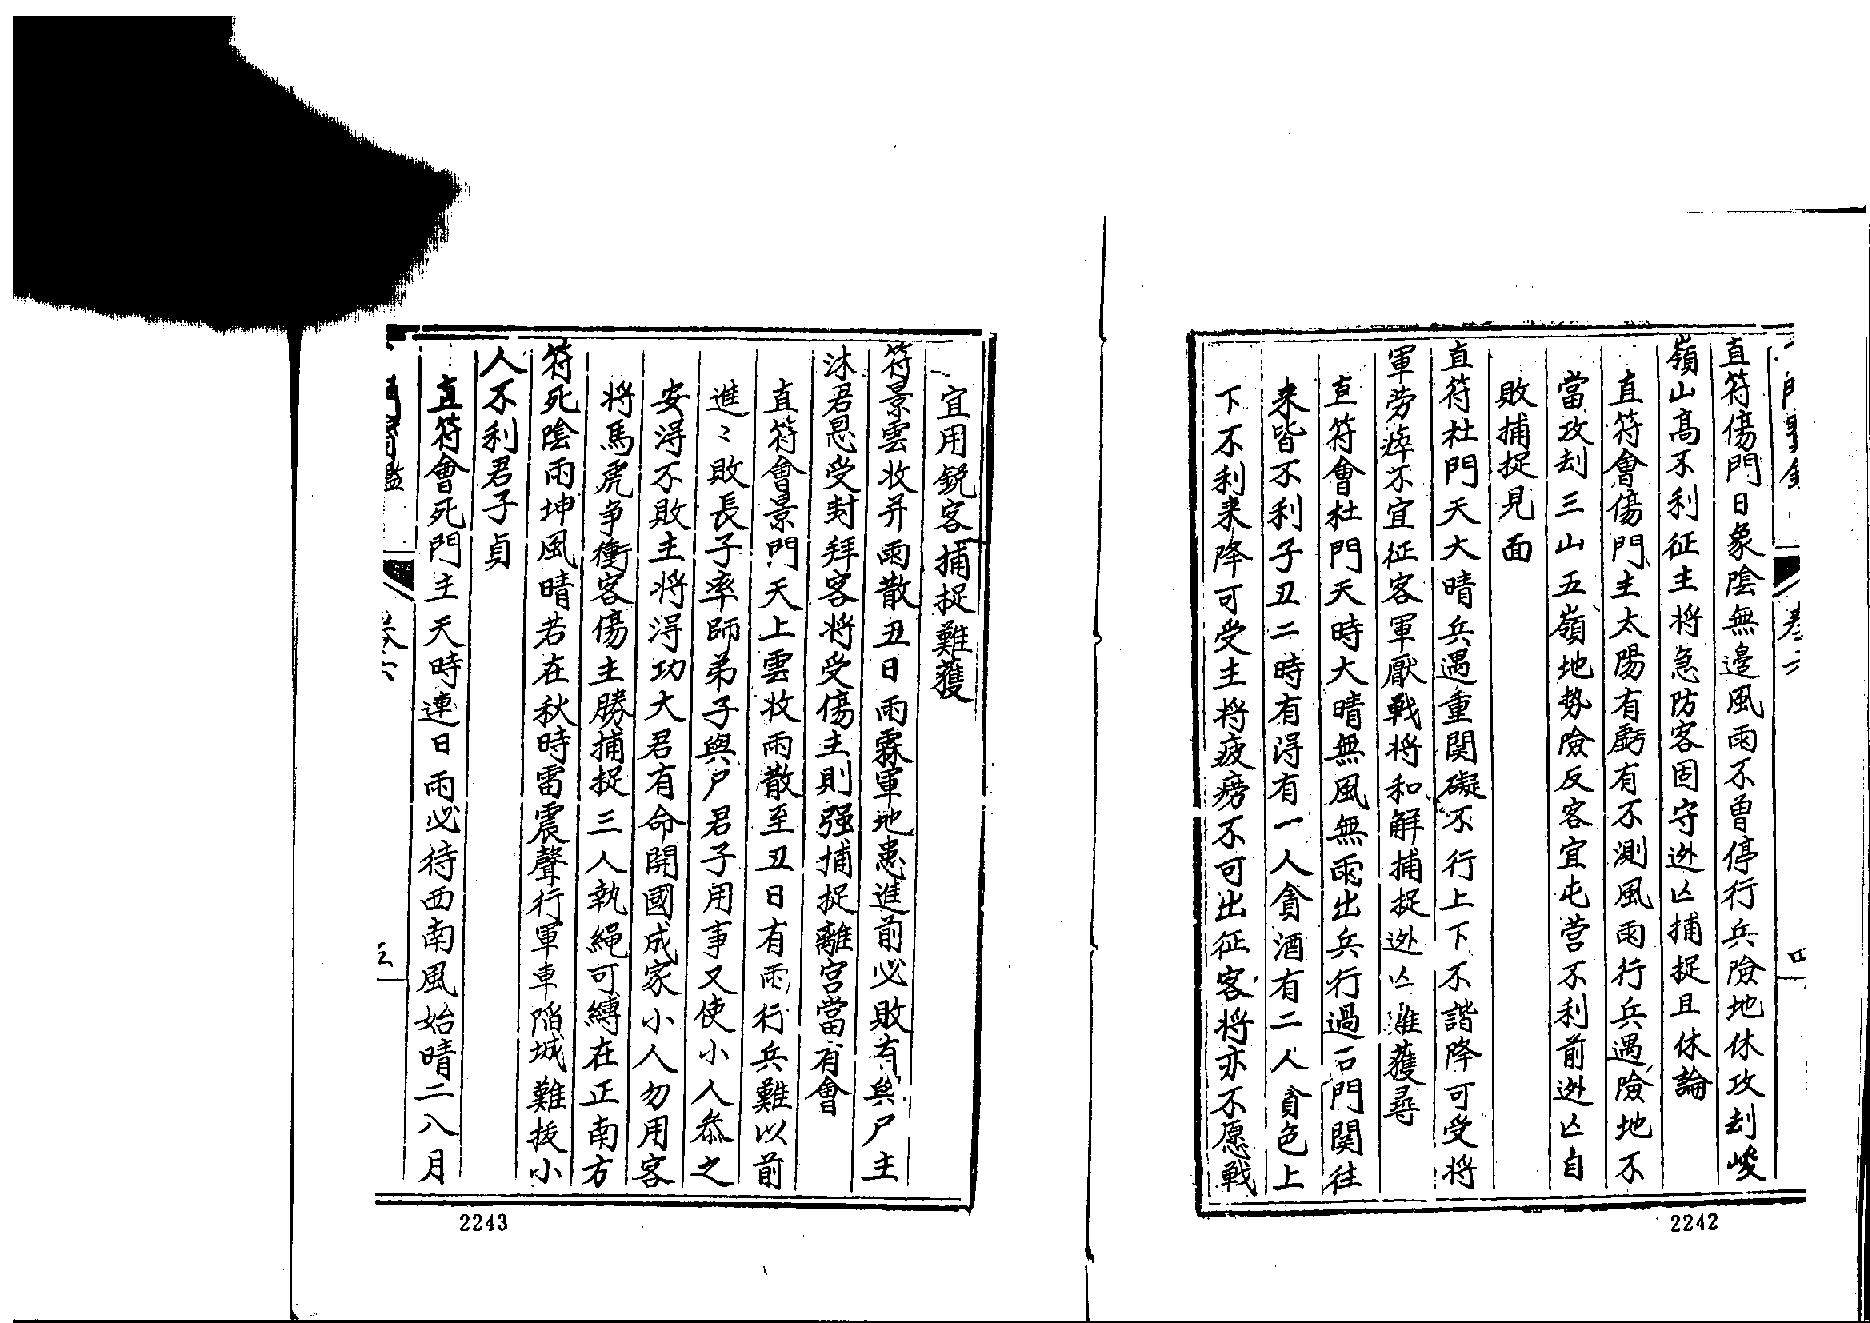 直符傷門日象陰無邊風雨不曾停行兵險地休攻刦峻
嶺山高不利征主將急防客固守逃亡捕捉且休論
直符會傷門主太陽有虧有不測風雨行兵遇險地不
當攻刦三山五嶺地勢險反客宜屯营不利前逃亡自
敗捕捉見面
直符杜門天大晴兵遇重関礙不行上下不諧降可受將
軍劳瘁不宜征客軍厭戰將和解捕捉逃亡難獲尋
直符會杜門天時大晴無風無雨出兵行過石門関往
来皆不利子丑二時有淂有一人貪酒有二人貪色上
下不利来降可受主將疲痨不可出征客將亦不愿戰
卷六
四
2242
宜用銳客捕捉難獲
符景雲收并雨散丑日雨霖軍地患進前必敗有與尸主
沐君恩受封拜客將受傷主則强捕捉離宮當有會
直符會景門天上雲收雨散至丑日有雨行兵難以前
進〻敗長子率師弟子與尸君子用事又使小人叅之
安淂不敗主將淂功大君有命開國成家小人勿用客
將馬虎争衝客傷主勝捕捉三人執繩可縛在正南方
符死陰雨坤風晴若在秋時雷震聲行軍車陷城難援小
人不利君子貞
直符會死門主天時連日雨必待西南風始晴二八月
卷六
2243